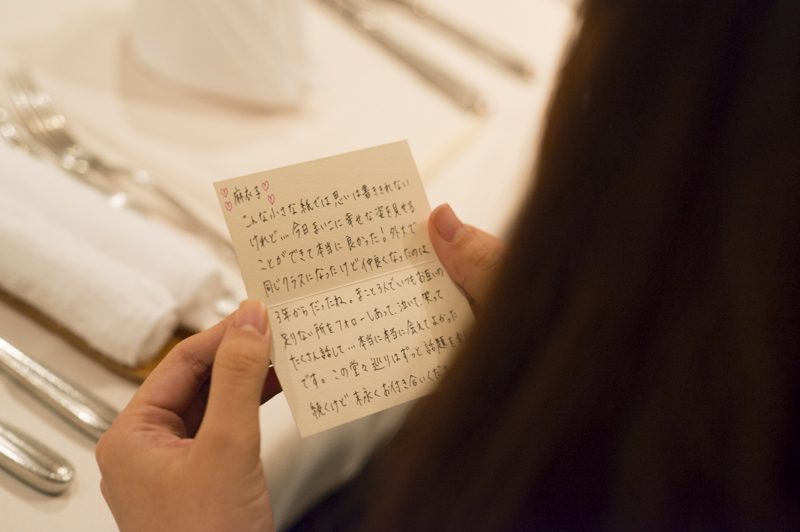 麻衣子
こんな小さな紙では思いは書ききれない
けれど…今日まいこに幸せな姿を見せる
ことができて本当に良かった！外大で
同じクラスになったけど仲良くなったのは
3年からだったね。まこと3人でいつもお互いの
足りない所をフォローしあって、泣いて、笑って
たくさん話して…本当に本当に会えてよかった
です。この堂々巡りはずっと話題を
続くけど末永くお付き合いくだ